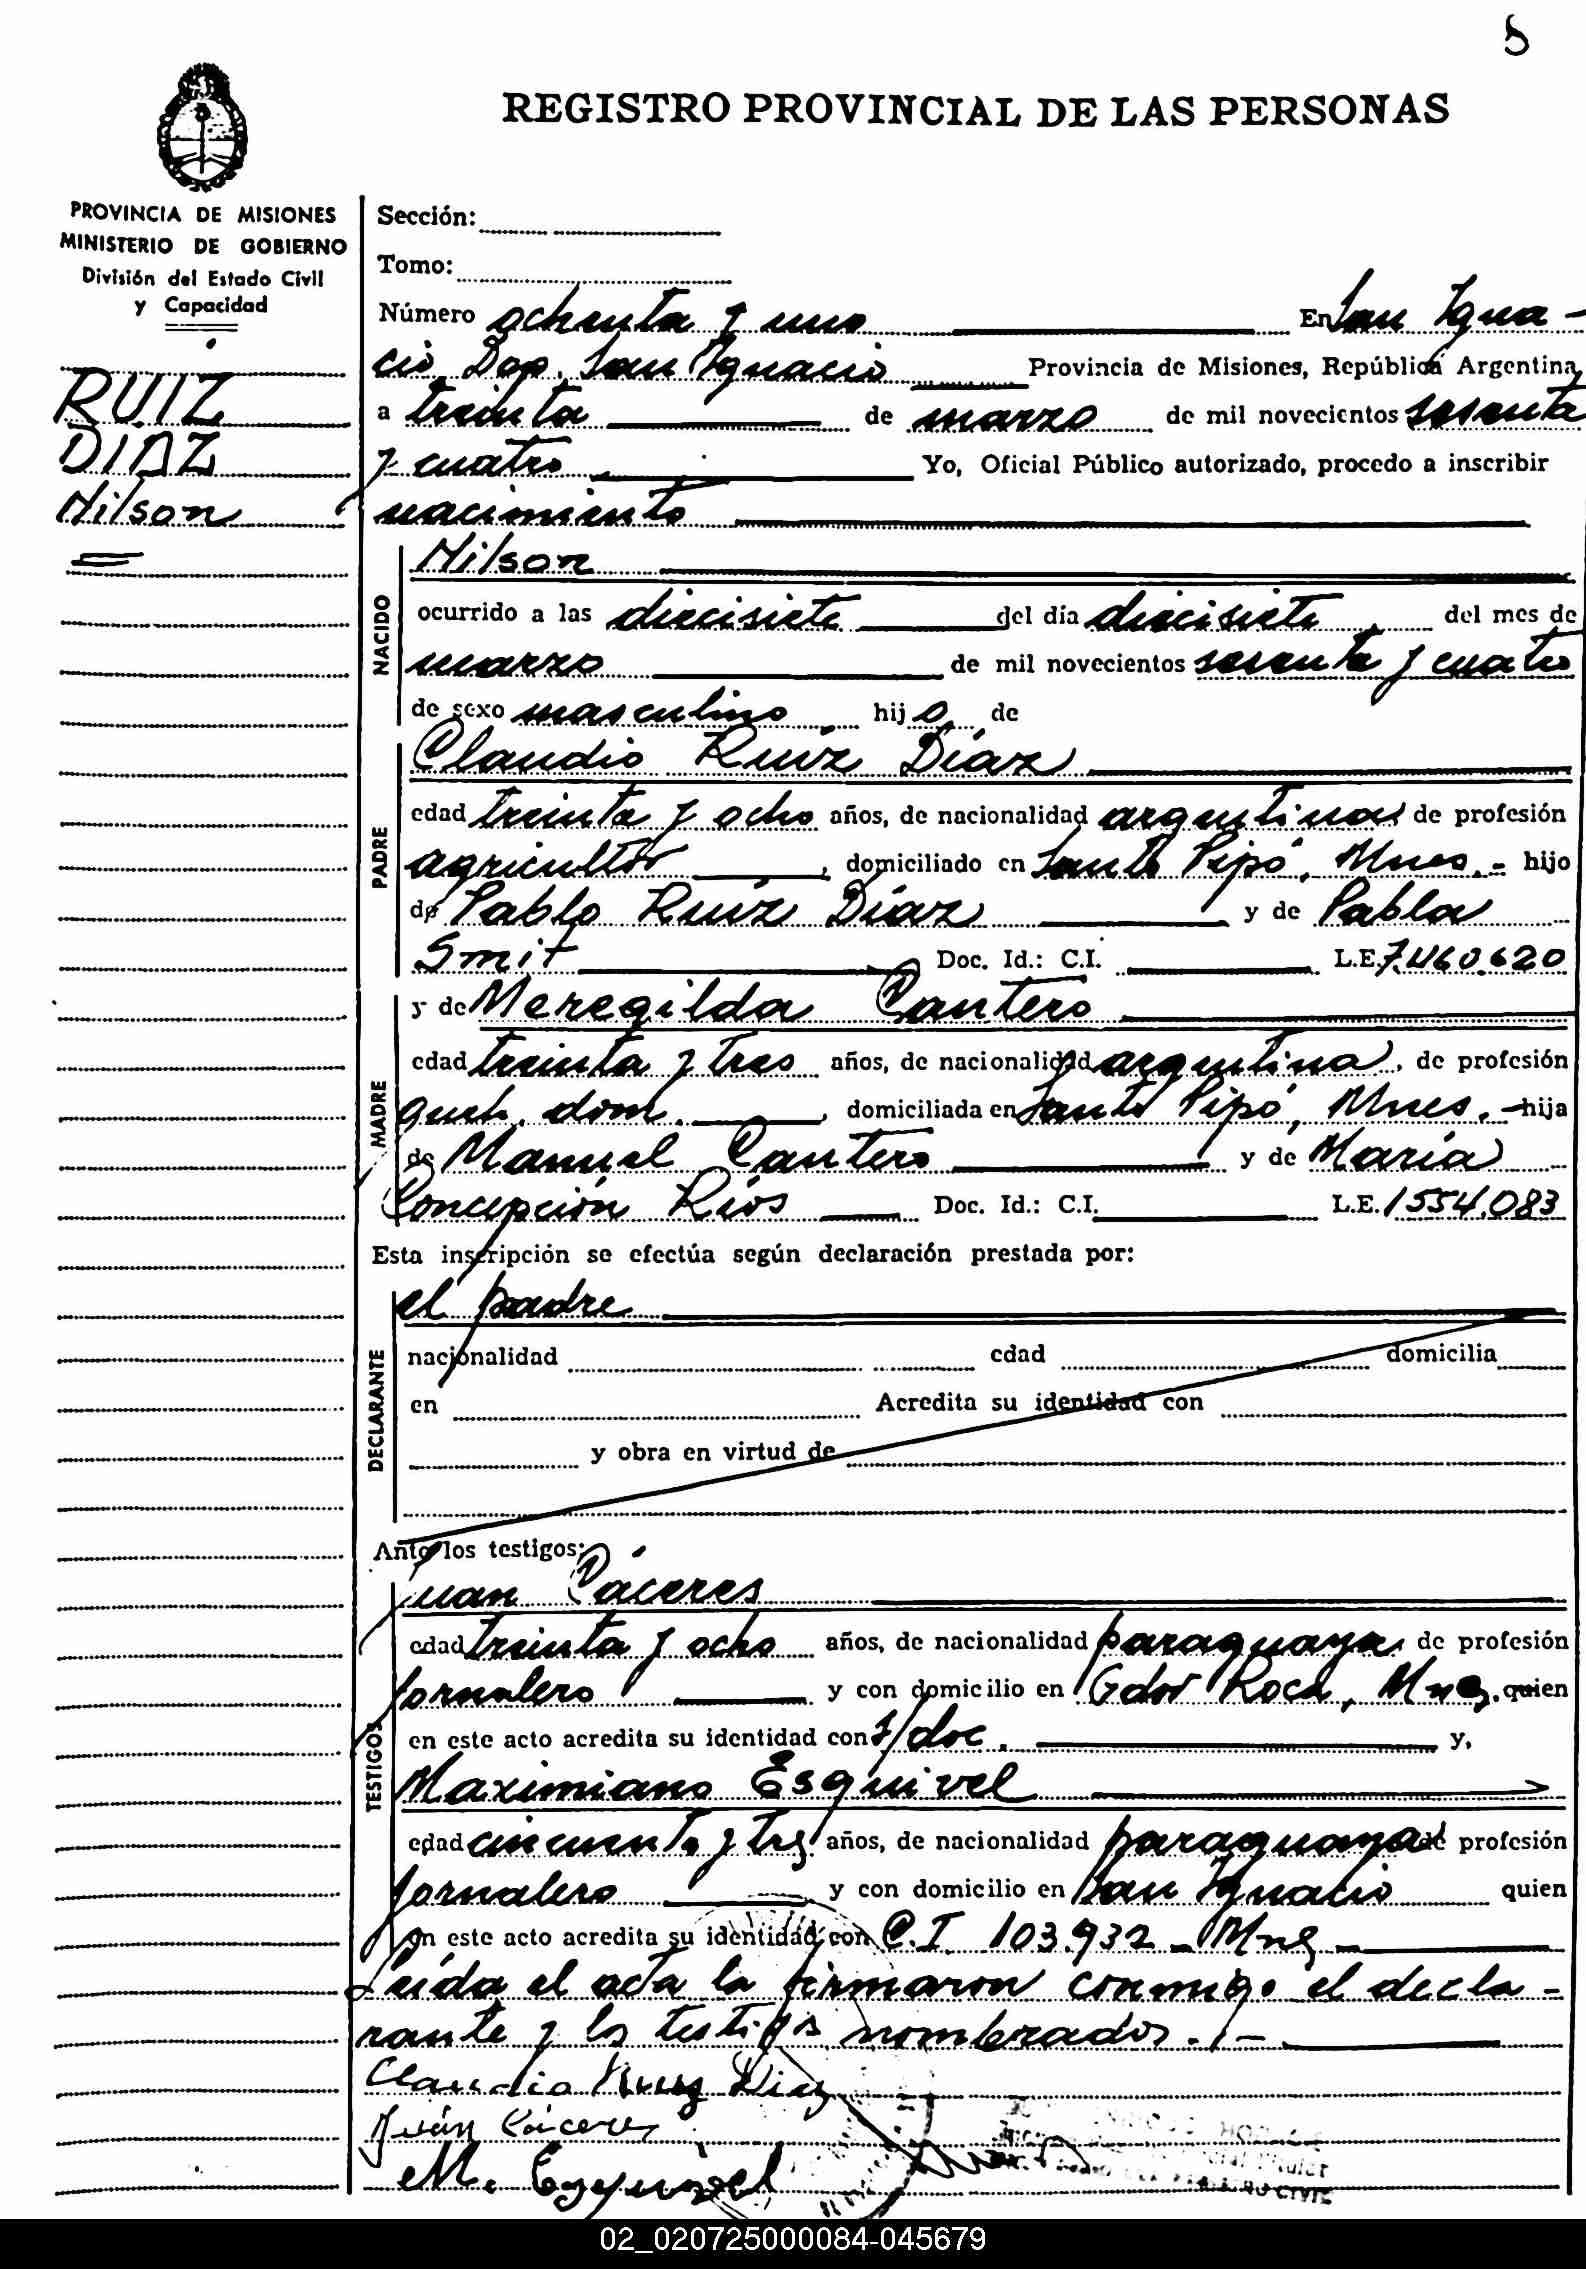 8
REGISTRO PROVINCIAL DE LAS PERSONAS
PROVINCIA DE MISIONES
MINISTERIO DE GOBIERNO
División del Estado Civil
y Capacidad
RUIZ
DIAZ
Nilson
Sección:
Tomo:
Número ochenta y uno En San Igna-
cio Dep. San Ignacio Provincia de Misiones, República Argentina,
a treinta de marzo de mil novecientos sesenta
y cuatro Yo, Oficial Público autorizado, procedo a inscribir
nacimiento
NACIDO
Nilson
ocurrido a las diecisiete del día diecisiete del mes de
marzo de mil novecientos sesenta y cuatro
de sexo masculino hijo de
PADRE
Claudio Ruíz Díaz
edad treinta y ocho años, de nacionalidad argentina de profesión
agricultor, domiciliado en Santo Pipó, Mnes.- hijo
de Pablo Ruíz Díaz y de Pabla
Smit Doc. Id.: C.I. L.E. 7.460.620
MADRE
y de Meregilda Cantero
edad treinta y tres años, de nacionalidad argentina, de profesión
queh. dom., domiciliada en Santo Pipó, Mnes.- hija
de Manuel Cantero y de María
Concepción Ríos Doc. Id.: C.I. L.E. 1554.083
Esta inscripción se efectúa según declaración prestada por:
DECLARANTE
el padre
nacionalidad edad domicilia
en Acredita su identidad con
y obra en virtud de
Ante los testigos:
TESTIGOS
Juan Cáceres
edad treinta y ocho años, de nacionalidad paraguaya, de profesión
jornalero y con domicilio en Gdor Roca, Mnes. quien
en este acto acredita su identidad con s/doc. y,
Maximiano Esquivel
edad cincuenta y tres años, de nacionalidad paraguaya de profesión
jornalero y con domicilio en San Ignacio quien
en este acto acredita su identidad con C.I 103.932 - Mnes -
Leída el acta la firmaron conmigo el decla-
rante y los testigos nombrados.-
Claudio Ruiz Diaz
Juán Cáceres
M. Esquivel
02_020725000084-045679